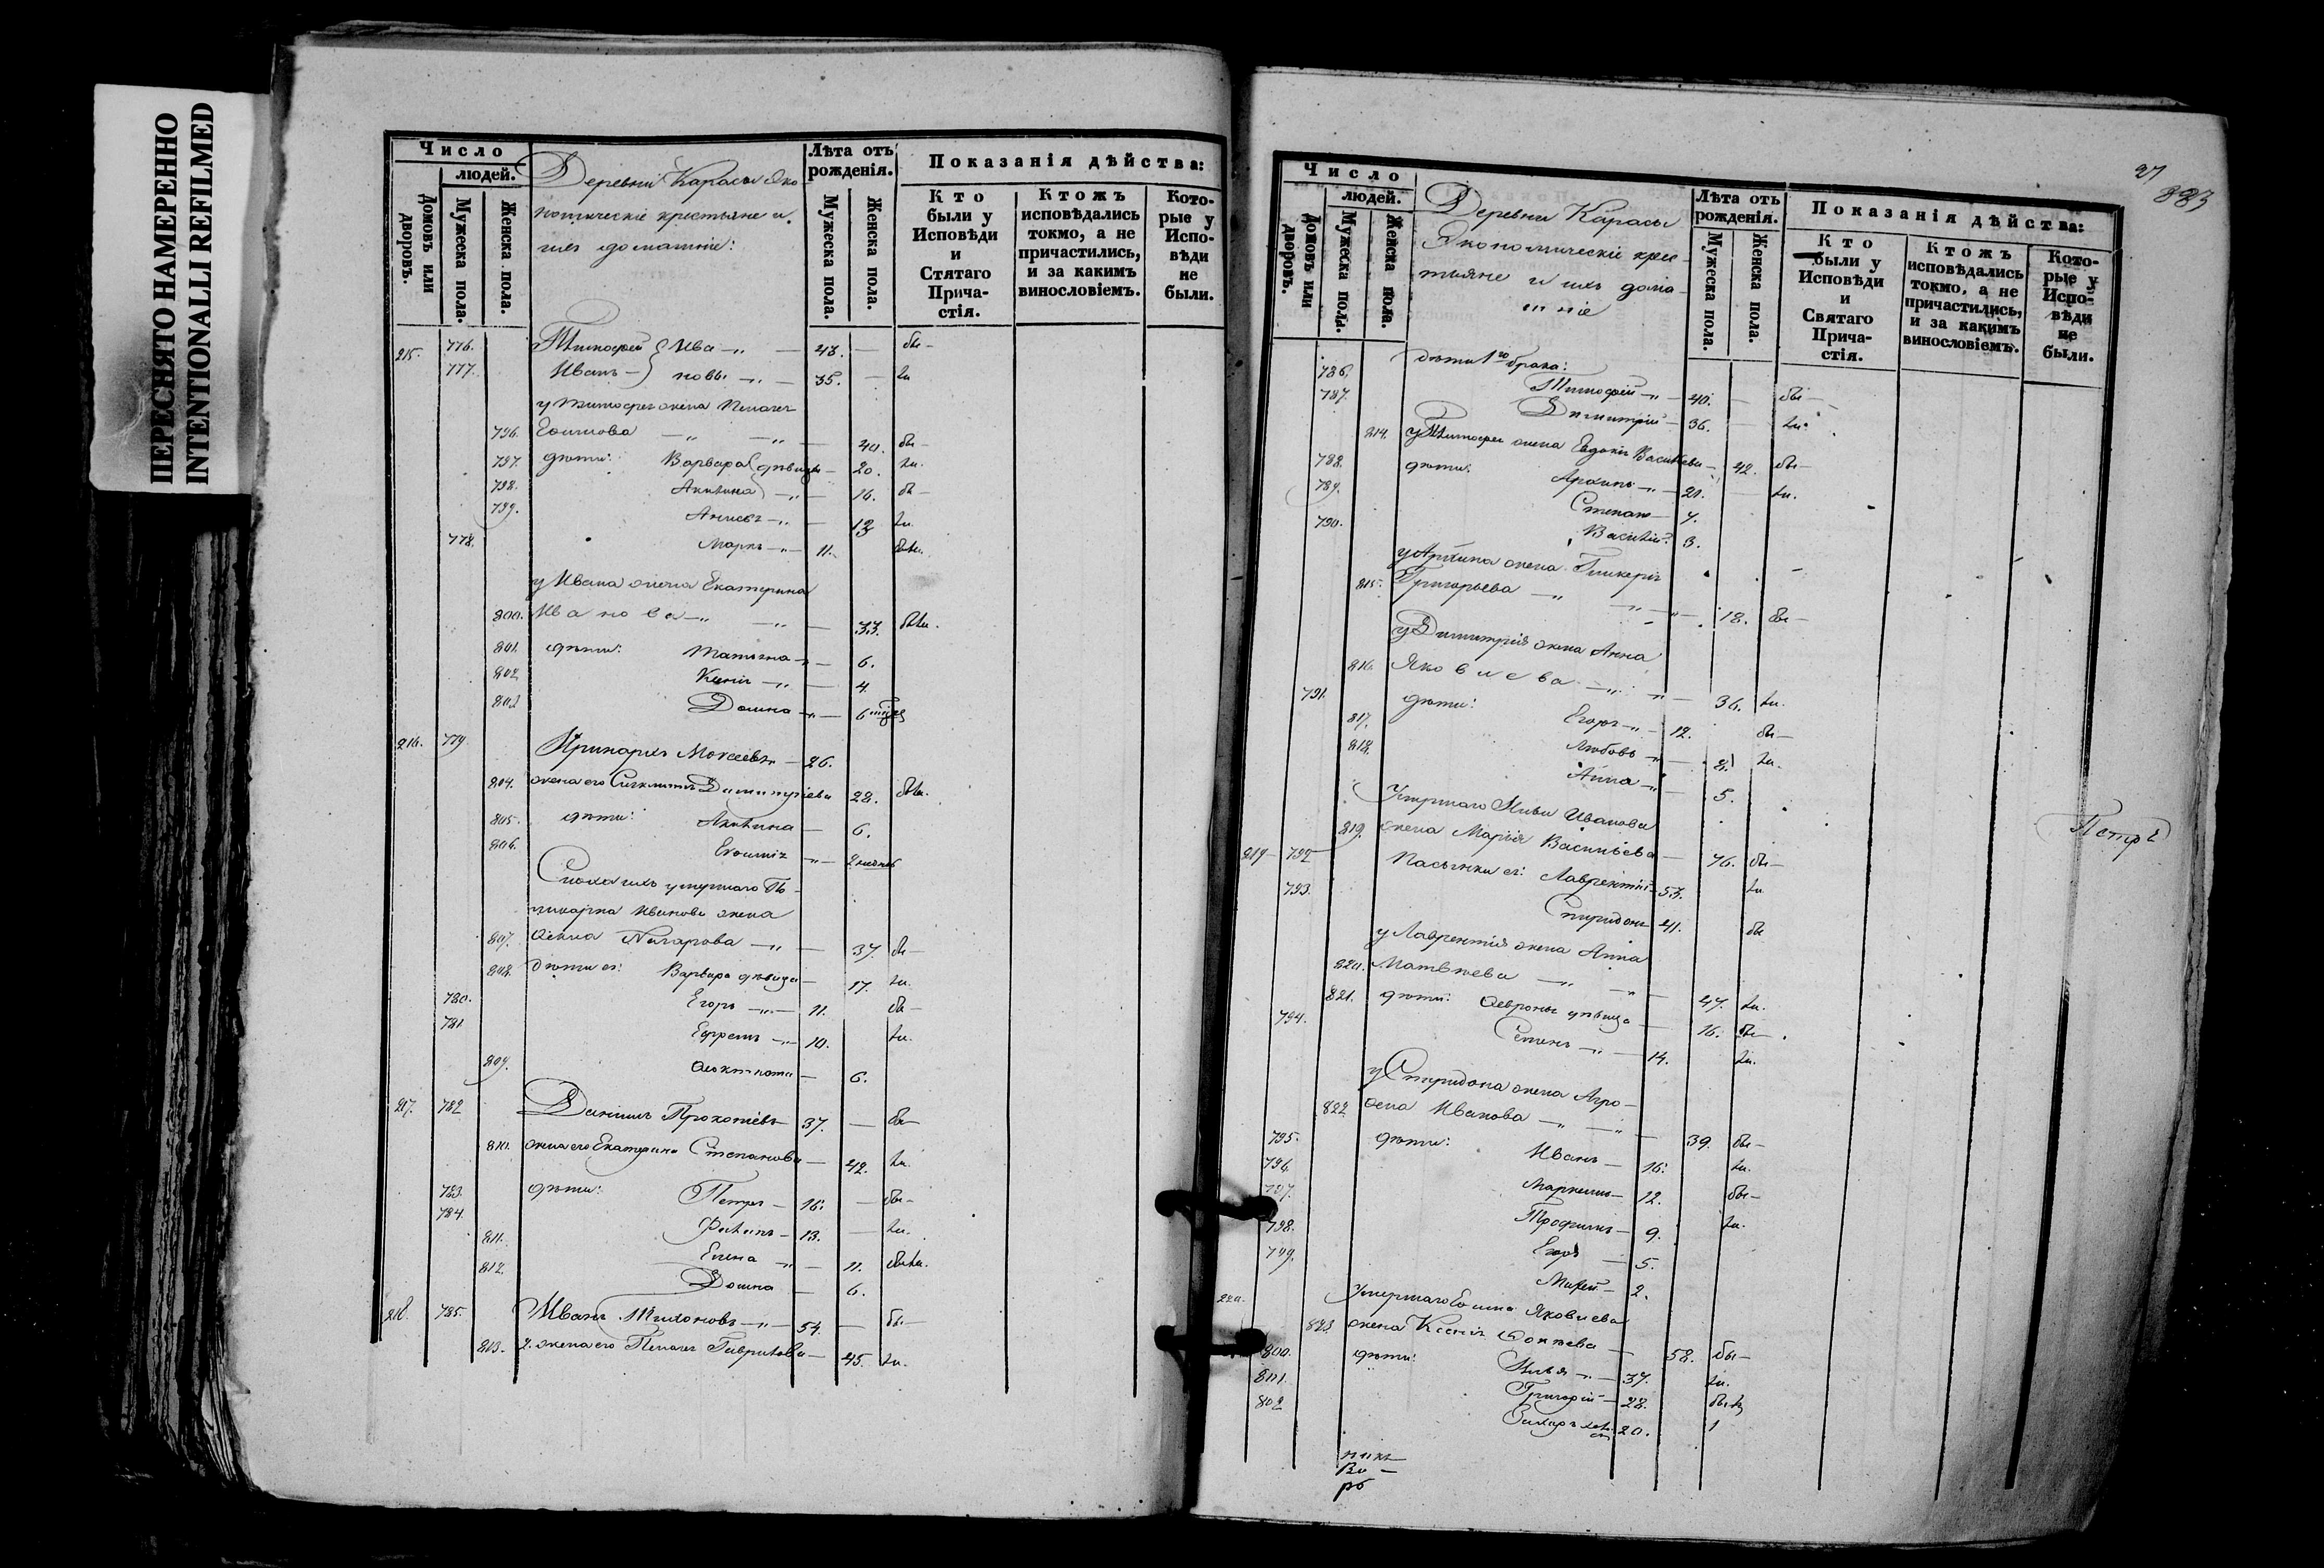 ПЕРЕСНЯТО НАМЕРЕННО
INTENTIONALLI REFILMED
Число
людей.
Домовъ или дворовъ.
Мужеска пола.
Женска пола.
Деревни Карасы Эко-
номическіе крестьяне и
ихъ домашніе:
Лѣта отъ рожденія.
Мужеска пола.
Женска пола.
Показанія дѣйства:
Кто были у Исповѣди и Стятаго Прича-стія.
Ктожъ исповѣдались токмо, а не причастились, и за какимъ винословіемъ.
Кото-рые у Испо-вѣди не были.
215. 776. Тимофей Ива 43. бы
777. Иванъ новы 35. ли
у Тимофея жена Пелагея
796. 40. бы
797. дѣти: Варвара дѣвицы 20. ли.
798. Акилина 16. бы
799. Анисья 13 ли.
778. Маркъ 11. были.
у Ивана жена Екатерина
800. Иванова 33. были.
801. дѣти: Татьяна 6.
802. Ксенія 4.
803 Домна 6
216. 779. Моисеевъ 26.
804. жена его Димитріева 28. были.
805. дѣти: Акилина 6.
806. Евфимія
умершаго
Иванова жена
807. 37. бы
808. дѣти ея: Варвара дѣвица 17. ли.
780. Егоръ 11. бы
781. Ефремъ 10. ли.
809. Феоктиста 6.
217. 782 Даніилъ Прокопіевъ 37. бы
810. жена его Екатерина Степанова 42. ли.
783. дѣти: Петръ 16. бы
784. Филипъ 13. ли.
811. Елена 11. были.
812. Домна 6.
218. 785. Иванъ Тихоновъ 54. бы
813. 2. жена его Пелагея Гаврилова 45. ли.
27
883
Число
людей.
Домовъ или дворовъ.
Мужеска пола.
Женска пола.
Деревни Карасы
Экономическіе крес-
тьяне и ихъ дома-
шніе
Лѣта отъ рожденія.
Мужеска пола.
Женска пола.
Показанія дѣйства:
Кто были у Исповѣди и Святаго Прича-стія.
Ктожъ исповѣдались токмо, а не причастились, и за какимъ винословіемъ.
Кото-рые у Испо-вѣди не были.
дѣти 1го брака:
786. Тимофей 40. бы
787. Димитрій 36. ли.
814. у Тимофея жена Евдокія Васильева 42. бы
788. дѣти: Архипъ 21. ли.
789. Степанъ 7.
790. Василій 3.
у Архипа жена Гликерія
815. Григорьева 18. бы
у Димитрія жена Анна
816. Яковлева 36. ли.
791. дѣти: Егоръ 12. бы
817. Любовь 8. ли.
818. Анна 5.
Умершаго Ильи Иванова
819. жена Марія Васильева 76. бы
219 792 Пасынки ея: Лаврентій 53. ли
793. Спиридонъ 41. бы
у Лаврентія жена Анна
820. Матвѣева 47. ли.
821. дѣти: Февронья дѣвица 16. бы
794. 14. ли.
у Спиридона жена Агро-
822 фена Иванова 39. бы
795. дѣти: Иванъ 16. ли.
796. Маркелъ 12. бы
797. Трофимъ 9. ли.
798. Егоръ 5.
799. Михей 2.
220. Умершаго Яковлева
823 жена Ксенія Фокѣева 58. бы
800. дѣти: Илья 37. ли.
801. Григорій 28.
802 Захаръ 20.
Петръ